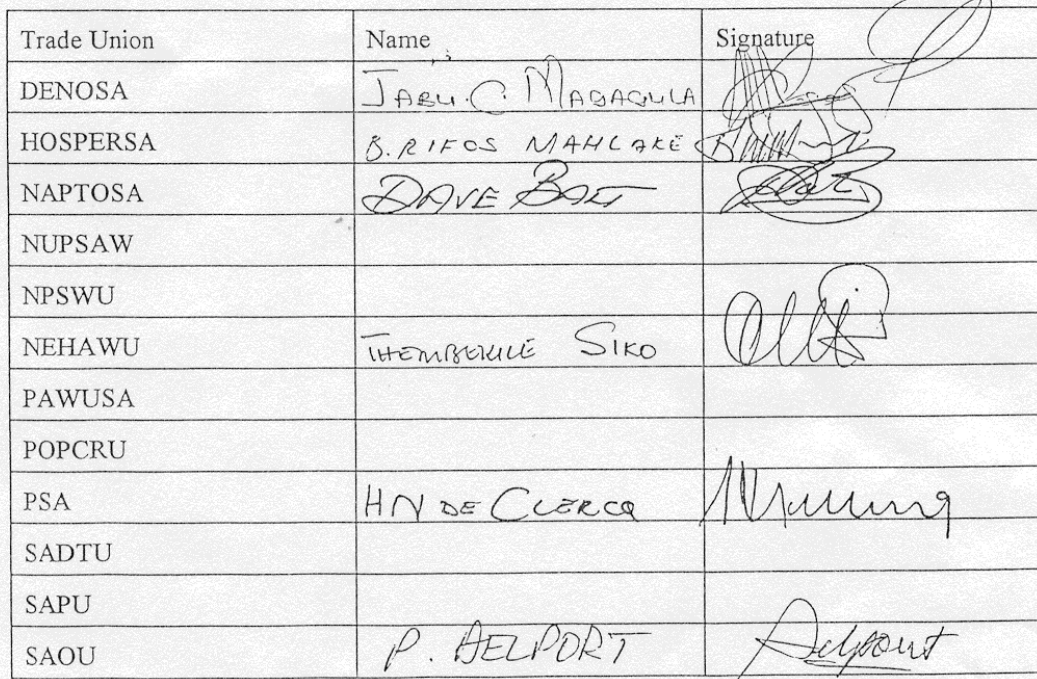 Trade Union Name Signature
DENOSA JABU. C. MAGAGULA
HOSPERSA B. RIFOS MAHLAKE
NAPTOSA DAVE BALT
NUPSAW
NPSWU
NEHAWU THEMBEKILE SIKO
PAWUSA
POPCRU
PSA HN DE CLERCQ
SADTU
SAPU
SAOU P. DELPORT Delport